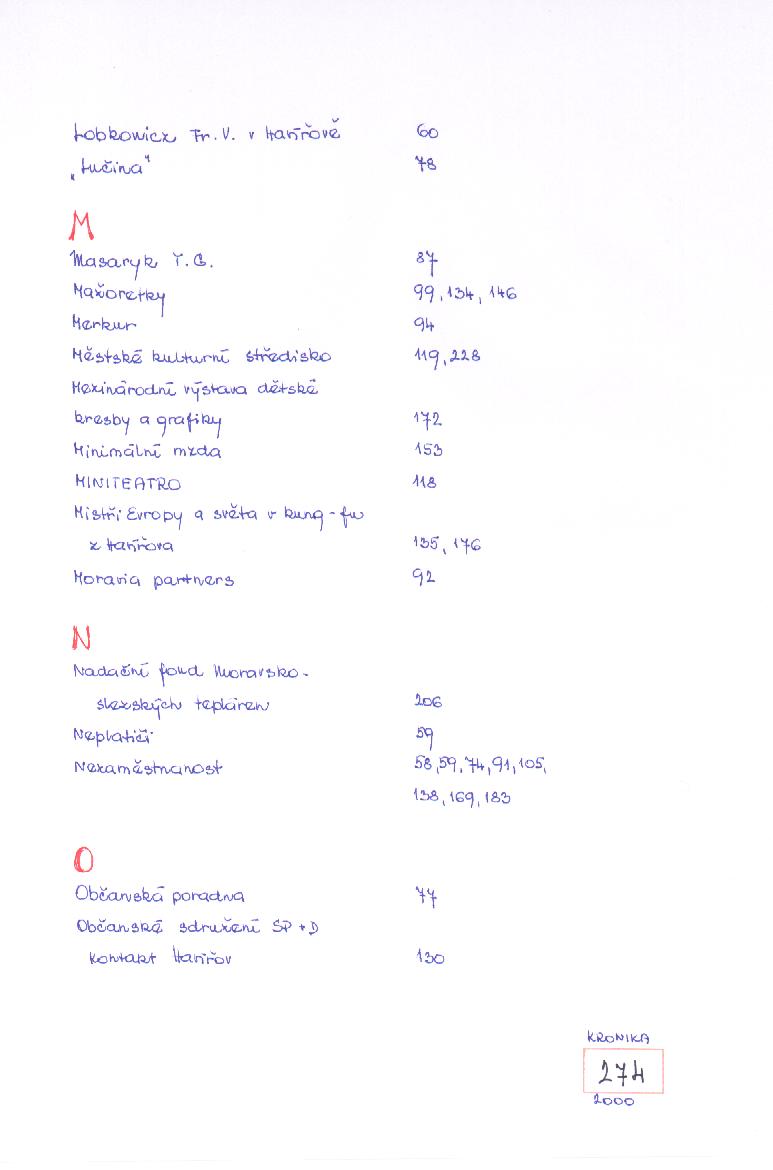 Lobkowicz Fr. V. v Havířově 60
„Lučina" 78
M
Masaryk T. G. 87
Mažoretky 99, 134, 146
Merkur 94
Městské kulturní středisko 119, 228
Mezinárodní výstava dětské
kresby a grafiky 172
Minimální mzda 153
MINITEATRO 118
Mistři Evropy a světa v kung-fu
z Havířova 135, 176
Moravia partners 92
N
Nadační fond Moravsko-
slezských tepláren 206
Neplatiči 59
Nezaměstnanost 58, 59, 74, 91, 105,
138, 169, 183
O
Občanská poradna 77
Občanské sdružení SP+D
Kontakt Havířov 130
KRONIKA
274
2000